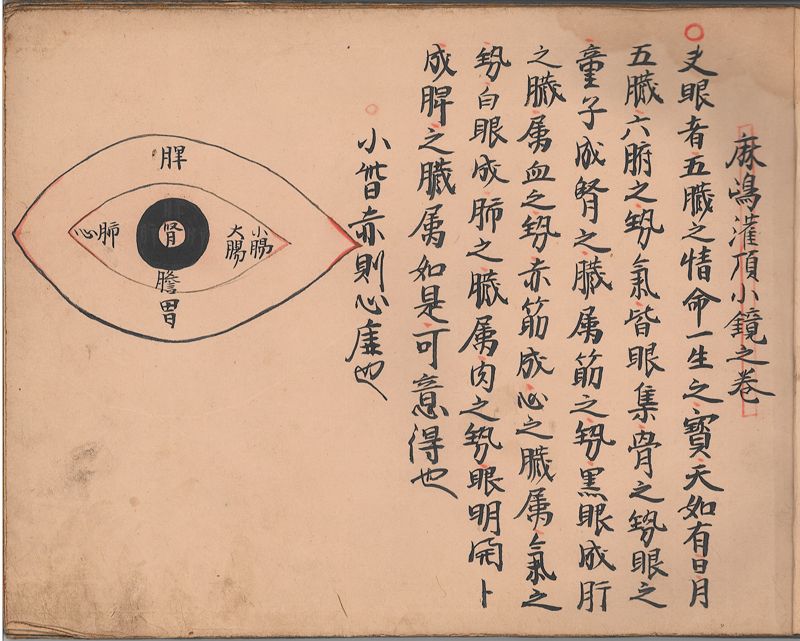 麻嶋灌頂小鏡之巻
夫眼者五臓之情命一生之寳天如有日月
五臓六腑之㔟氣皆眼集骨之㔟眼之
童子成腎之臓属筋之㔟黒眼成肝
之臓属血之㔟赤筋成心之臓属氣之
㔟白眼成肺之臓属肉之㔟眼明閇ト
成脾之臓属如是可意得也
小眥赤則心虚也
脾
小腸
大腸
腎
肺
心
膽
胃